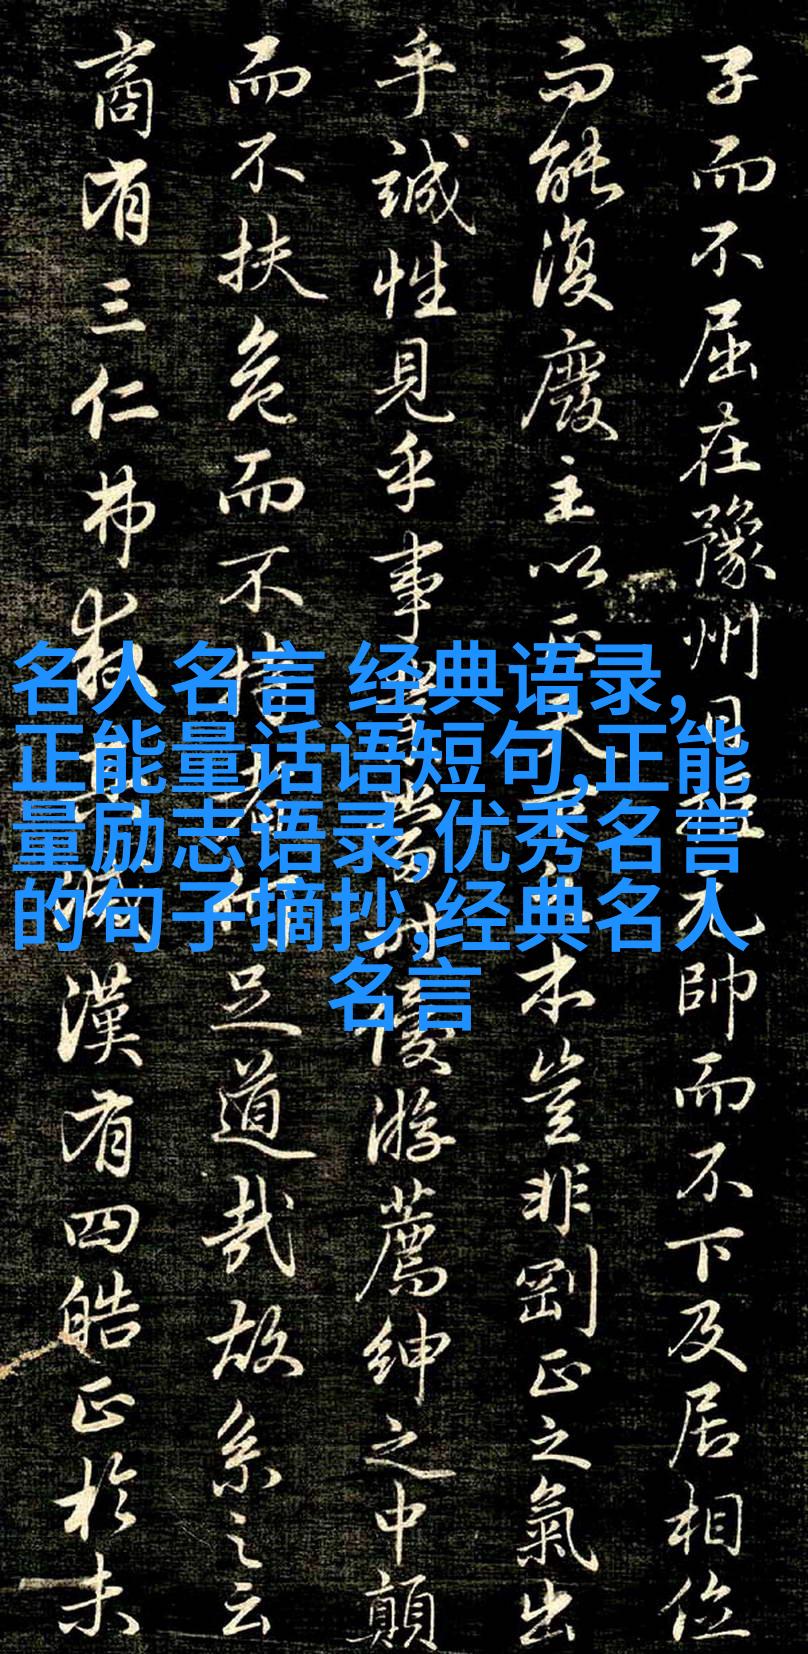 子而不屈在豫州日元帥而不下及居相位
而能復廢主以正天下之本豈非剛正之氣出
乎誠性見乎事業當時優游薦紳之中顛
而不扶危而不持者何足道哉故系之云
商有三仁弗救其滅漢有四皓正於未
名人名言 经典语录,
正能量话语短句,正能
量励志语录,优秀名言
的句子摘抄,经典名人
名言